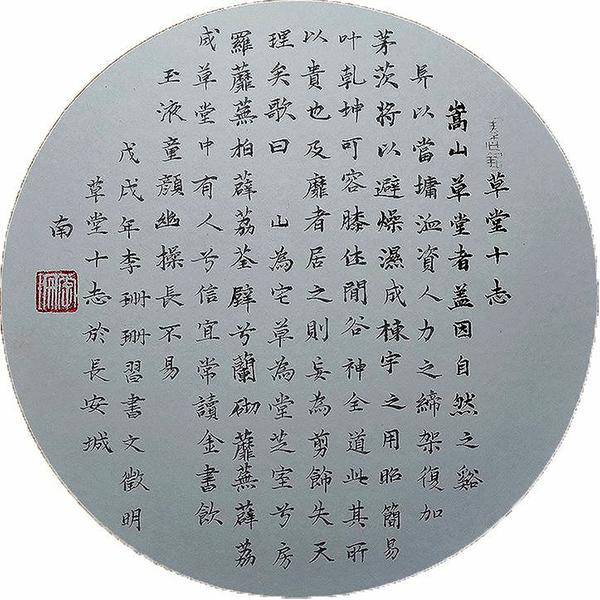 草堂十志
嵩山草堂者盖因自然之谿
阜以當墉洫資人力之締架復加
茅茨將以避燥濕成棟宇之用昭簡易
叶乾坤可容膝休閒谷神全道此其所
以貴也及靡者居之則妄為剪飾失天
理矣歌曰 山為宅草為堂芝室兮房
羅蘼蕪拍薜荔荃壁兮蘭砌蘼蕪薜荔
成草堂中有人兮信宜常讀金書飲
玉液童顏幽操長不易
戊戌年李珊珊習書文徵明
草堂十志於長安城
南